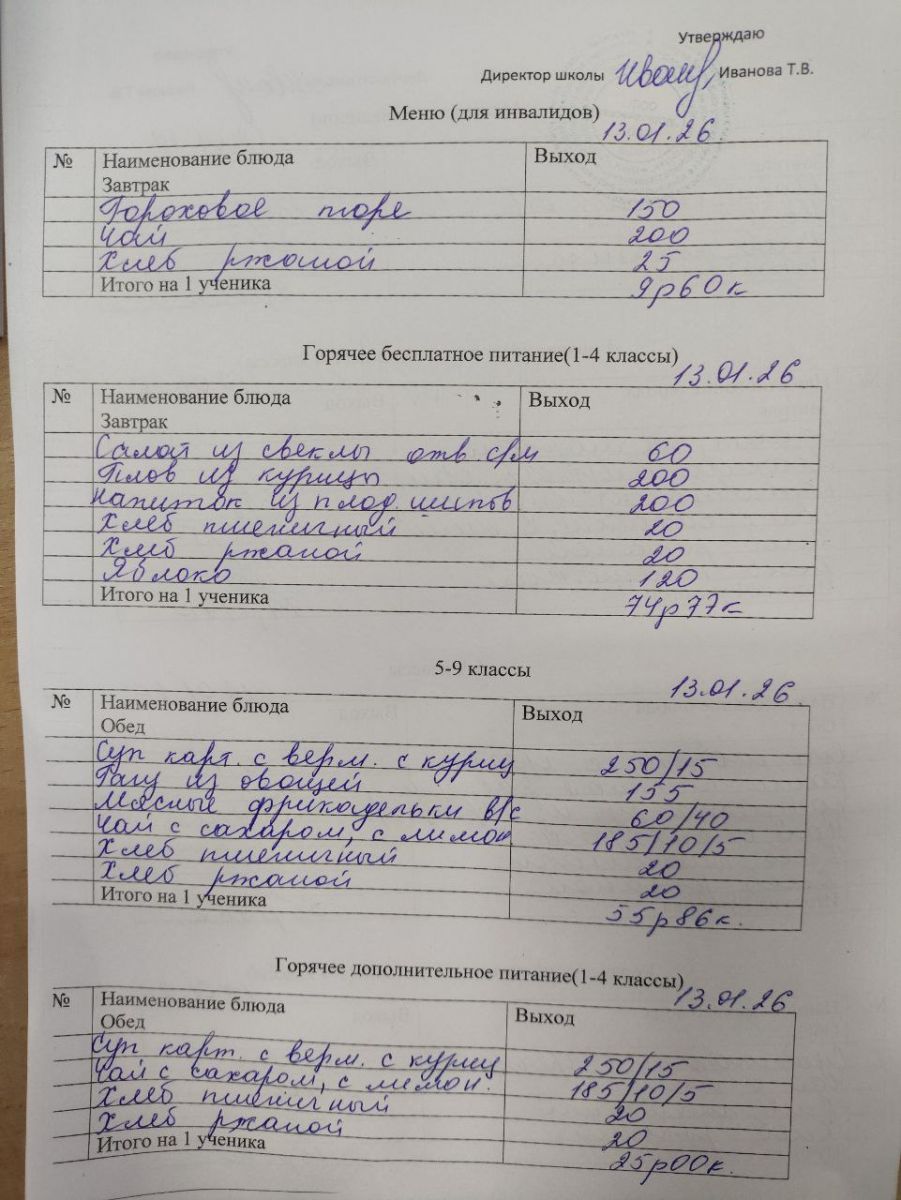 Утверждаю
Директор школы Иванова Т.В.
Меню (для инвалидов)
13.01.26
№ Наименование блюда Выход
Завтрак
Гороховое пюре 150
Чай 200
Хлеб ржаной 25
Итого на 1 ученика 9р60к
Горячее бесплатное питание(1-4 классы)
13.01.26
№ Наименование блюда Выход
Завтрак
Салат из свеклы отв. с/м 60
Плов из курицы 200
Напиток из плод. шипов 200
Хлеб пшеничный 20
Хлеб ржаной 20
Яблоко 120
Итого на 1 ученика 74р77к
5-9 классы
13.01.26
№ Наименование блюда Выход
Обед
Суп карт. с верм. с куриц 250/15
Рагу из овощей 155
Мясные фрикадельки в/с 60/40
Чай с сахаром, с лимон 185/10/5
Хлеб пшеничный 20
Хлеб ржаной 20
Итого на 1 ученика 55р86к.
Горячее дополнительное питание(1-4 классы)
13.01.26
№ Наименование блюда Выход
Обед
Суп карт. с верм. с куриц 250/15
Чай с сахаром, с лимон. 185/10/5
Хлеб пшеничный 20
Хлеб ржаной 20
Итого на 1 ученика 25р00к.